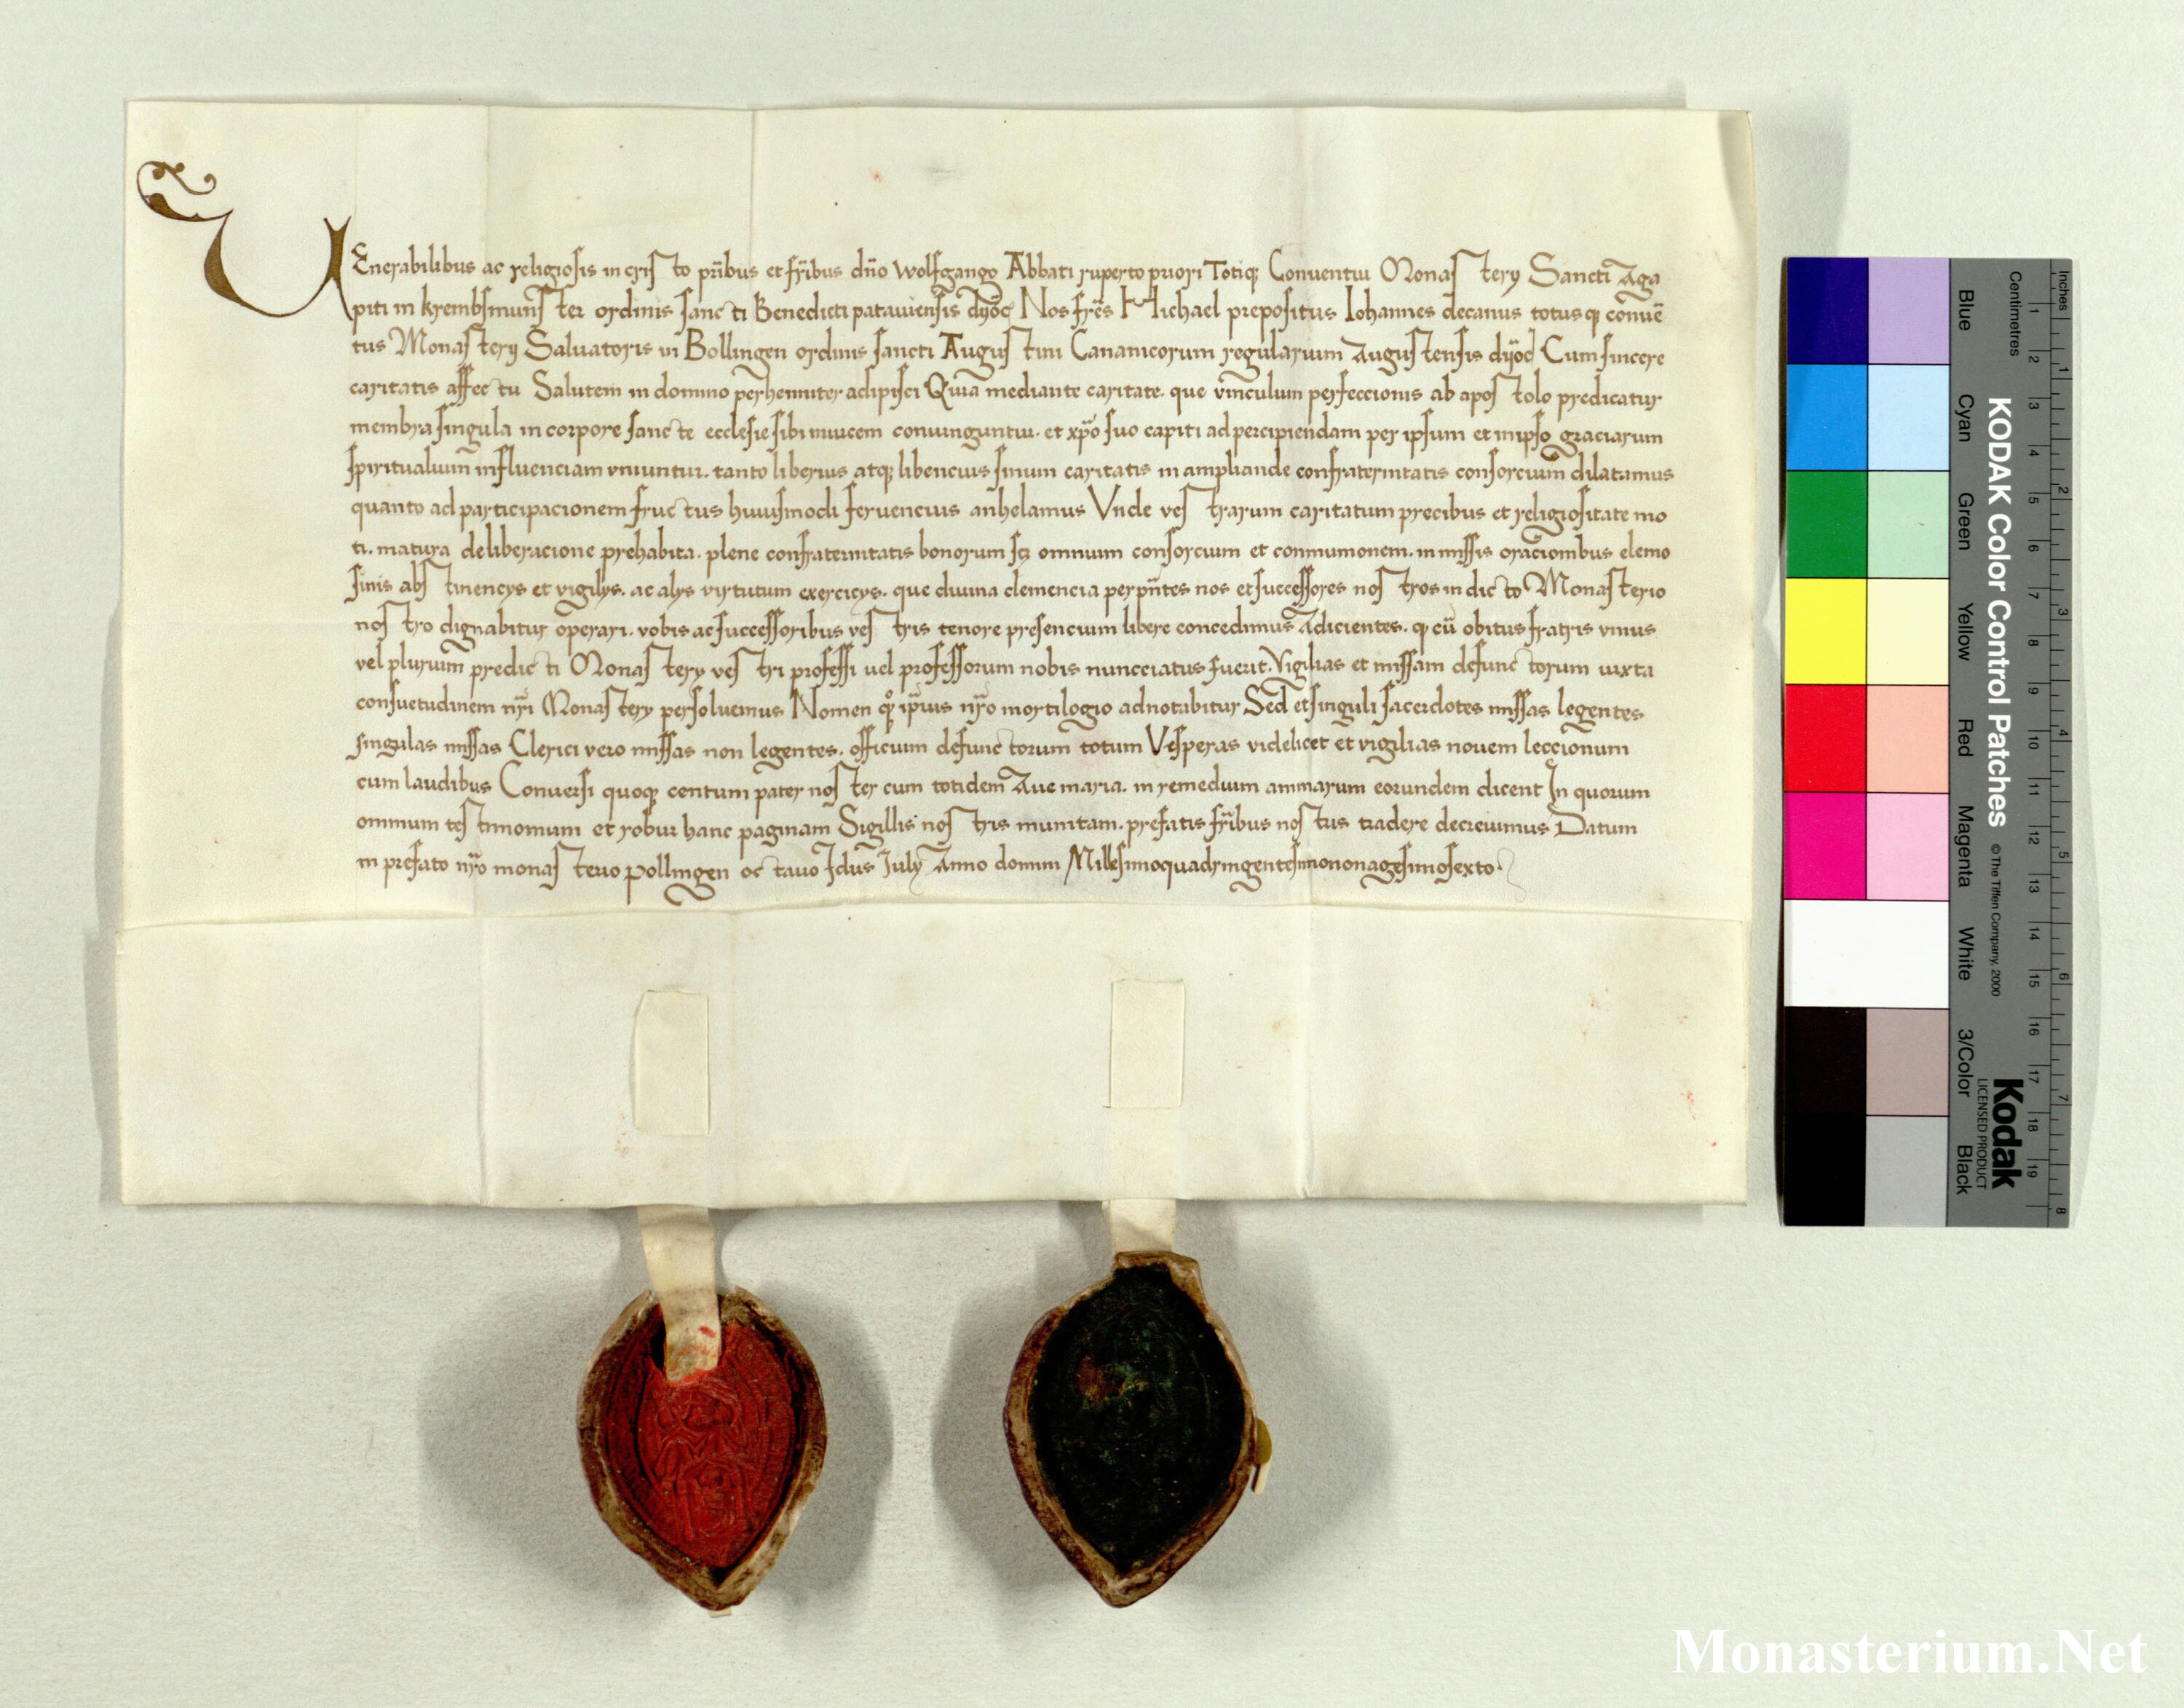 VEnerabilibus ac religiosis in cristo pr̄ibus et fr̄ibus dn̄o Wolfgango Abbati ruperto priori Totiq; Conuentui Monastery Sancti Aga
piti in krembsmunster ordinis sancti Benedicti patauiensis dyoc̄ Nos fr̄es Michael prepositus Iohannes decanus totusq; conuē
tus Monastery Saluatoris in Bollingen ordinis sancti Augustini Cananicorum regularium Augustensis dyoc̄ Cum sincere
caritatis affectu Salutem in domino perhenniter adipisci Quia mediante caritate. que vinculum perfeccionis ab apostolo predicatur
membra singula in corpore sancte ecclesie sibi inuicem coniunguntur. et xp̄o suo capiti ad percipiendam per ipsum et in ipso graciarum
spiritualium influenciam vniuntur. tanto liberius atq; libencius sinum caritatis in ampliande confraternitatis consorcium dilatamus
quanto ad participacionem fructus huiusmodi feruencius anhelamus Vnde vestrarum caritatum precibus et religiositate mo
ti. matura deliberacione prehabita. plene confraternitatis bonorum scz omnium consorcium et conmunionem. in missis oracionibus elemo
sinis abstinencys et vigilys. ac alys virtutum exercicys. que diuina clemencia per pn̄tes nos et successores nostros in dicto Monasterio
nostro dignabitur operari. vobis ac successoribus vestris tenore presencium libere concedimus Adicientes. ꝙ cū obitus fratris vnius
vel plurium predicti Monastery vestri professi uel professorum nobis nuncciatus fuerit. Vigilias et missam defunctorum iuxta
consuetudinem nr̄i Monastery persoluemus Nomen qꝫ ip̄ius nr̄o mortilogio adnotabitur Sed et singuli sacerdotes missas legentes
singulas missas Clerici vero missas non legentes. officium defunctorum totum Vesperas videlicet et vigilias nouem leccionum
cum laudibus Conuersi quoq; centum pater noster cum totidem Aue maria. in remedium animarum eorundem dicent In quorum
omnium testimonium et robur hanc paginam Sigillis nostris munitam. prefatis fr̄ibus nostris tradere decreuimus Datum
in prefato nr̄o monasterio pollingen octauo Idus July Anno domini Millesimoquadringentesimononagesimosexto.
Inches
Centimetres
1 2 3 4 5 6 7 8
1 2 3 4 5 6 7 8 9 10 11 12 13 14 15 16 17 18 19
KODAK Color Control Patches
© The Tiffen Company, 2000
Kodak
LICENSED PRODUCT
Blue
Cyan
Green
Yellow
Red
Magenta
White
3/Color
Black
Monasterium.Net